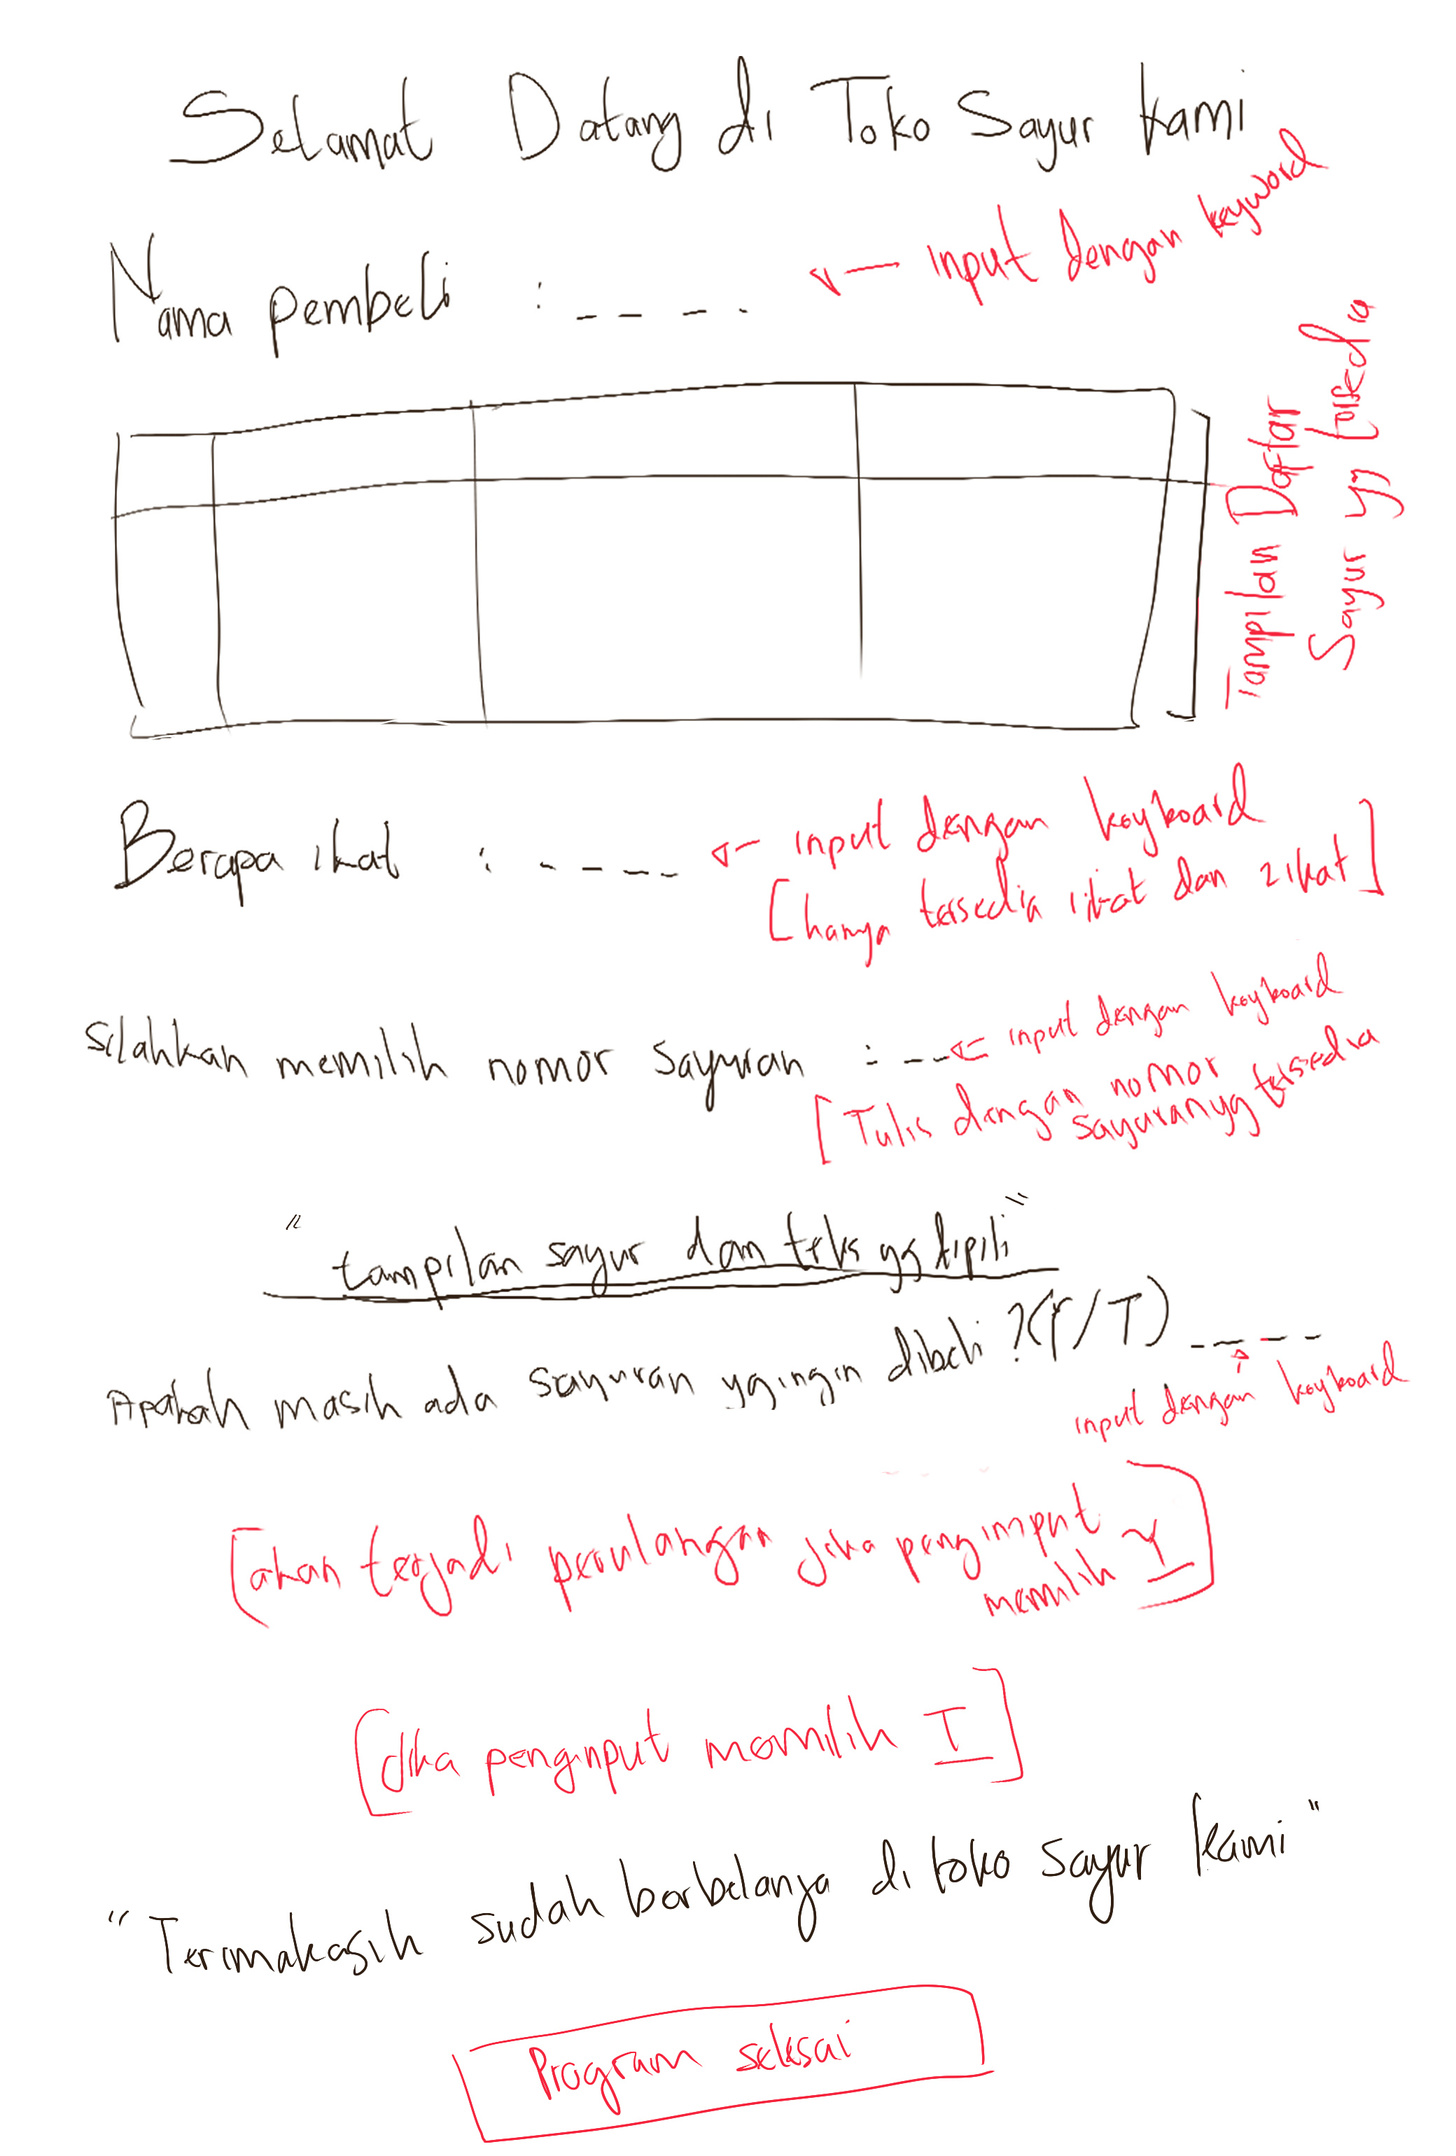 Selamat Datang di Toko Sayur kami
Nama pembeli : ---- ← input dengan keyword
Tampilan Daftar
Sayur yg tersedia
Berapa ikat : ---- ← input dengan keyboard
[hanya tersedia 1ikat dan 2ikat]
silahkan memilih nomor sayuran : -- ← input dengan keyboard
[Tulis dengan nomor
sayuran yg tersedia
"tampilan sayur dan teks yg dipili"
Apakah masih ada sayuran yg ingin dibeli ?(Y/T) ----
input dengan keyboard
[akan terjadi perulangan jika pengimput
memilih Y]
[Jika penginput memilih T]
"Terimakasih sudah berbelanja di toko sayur kami"
Program selesai